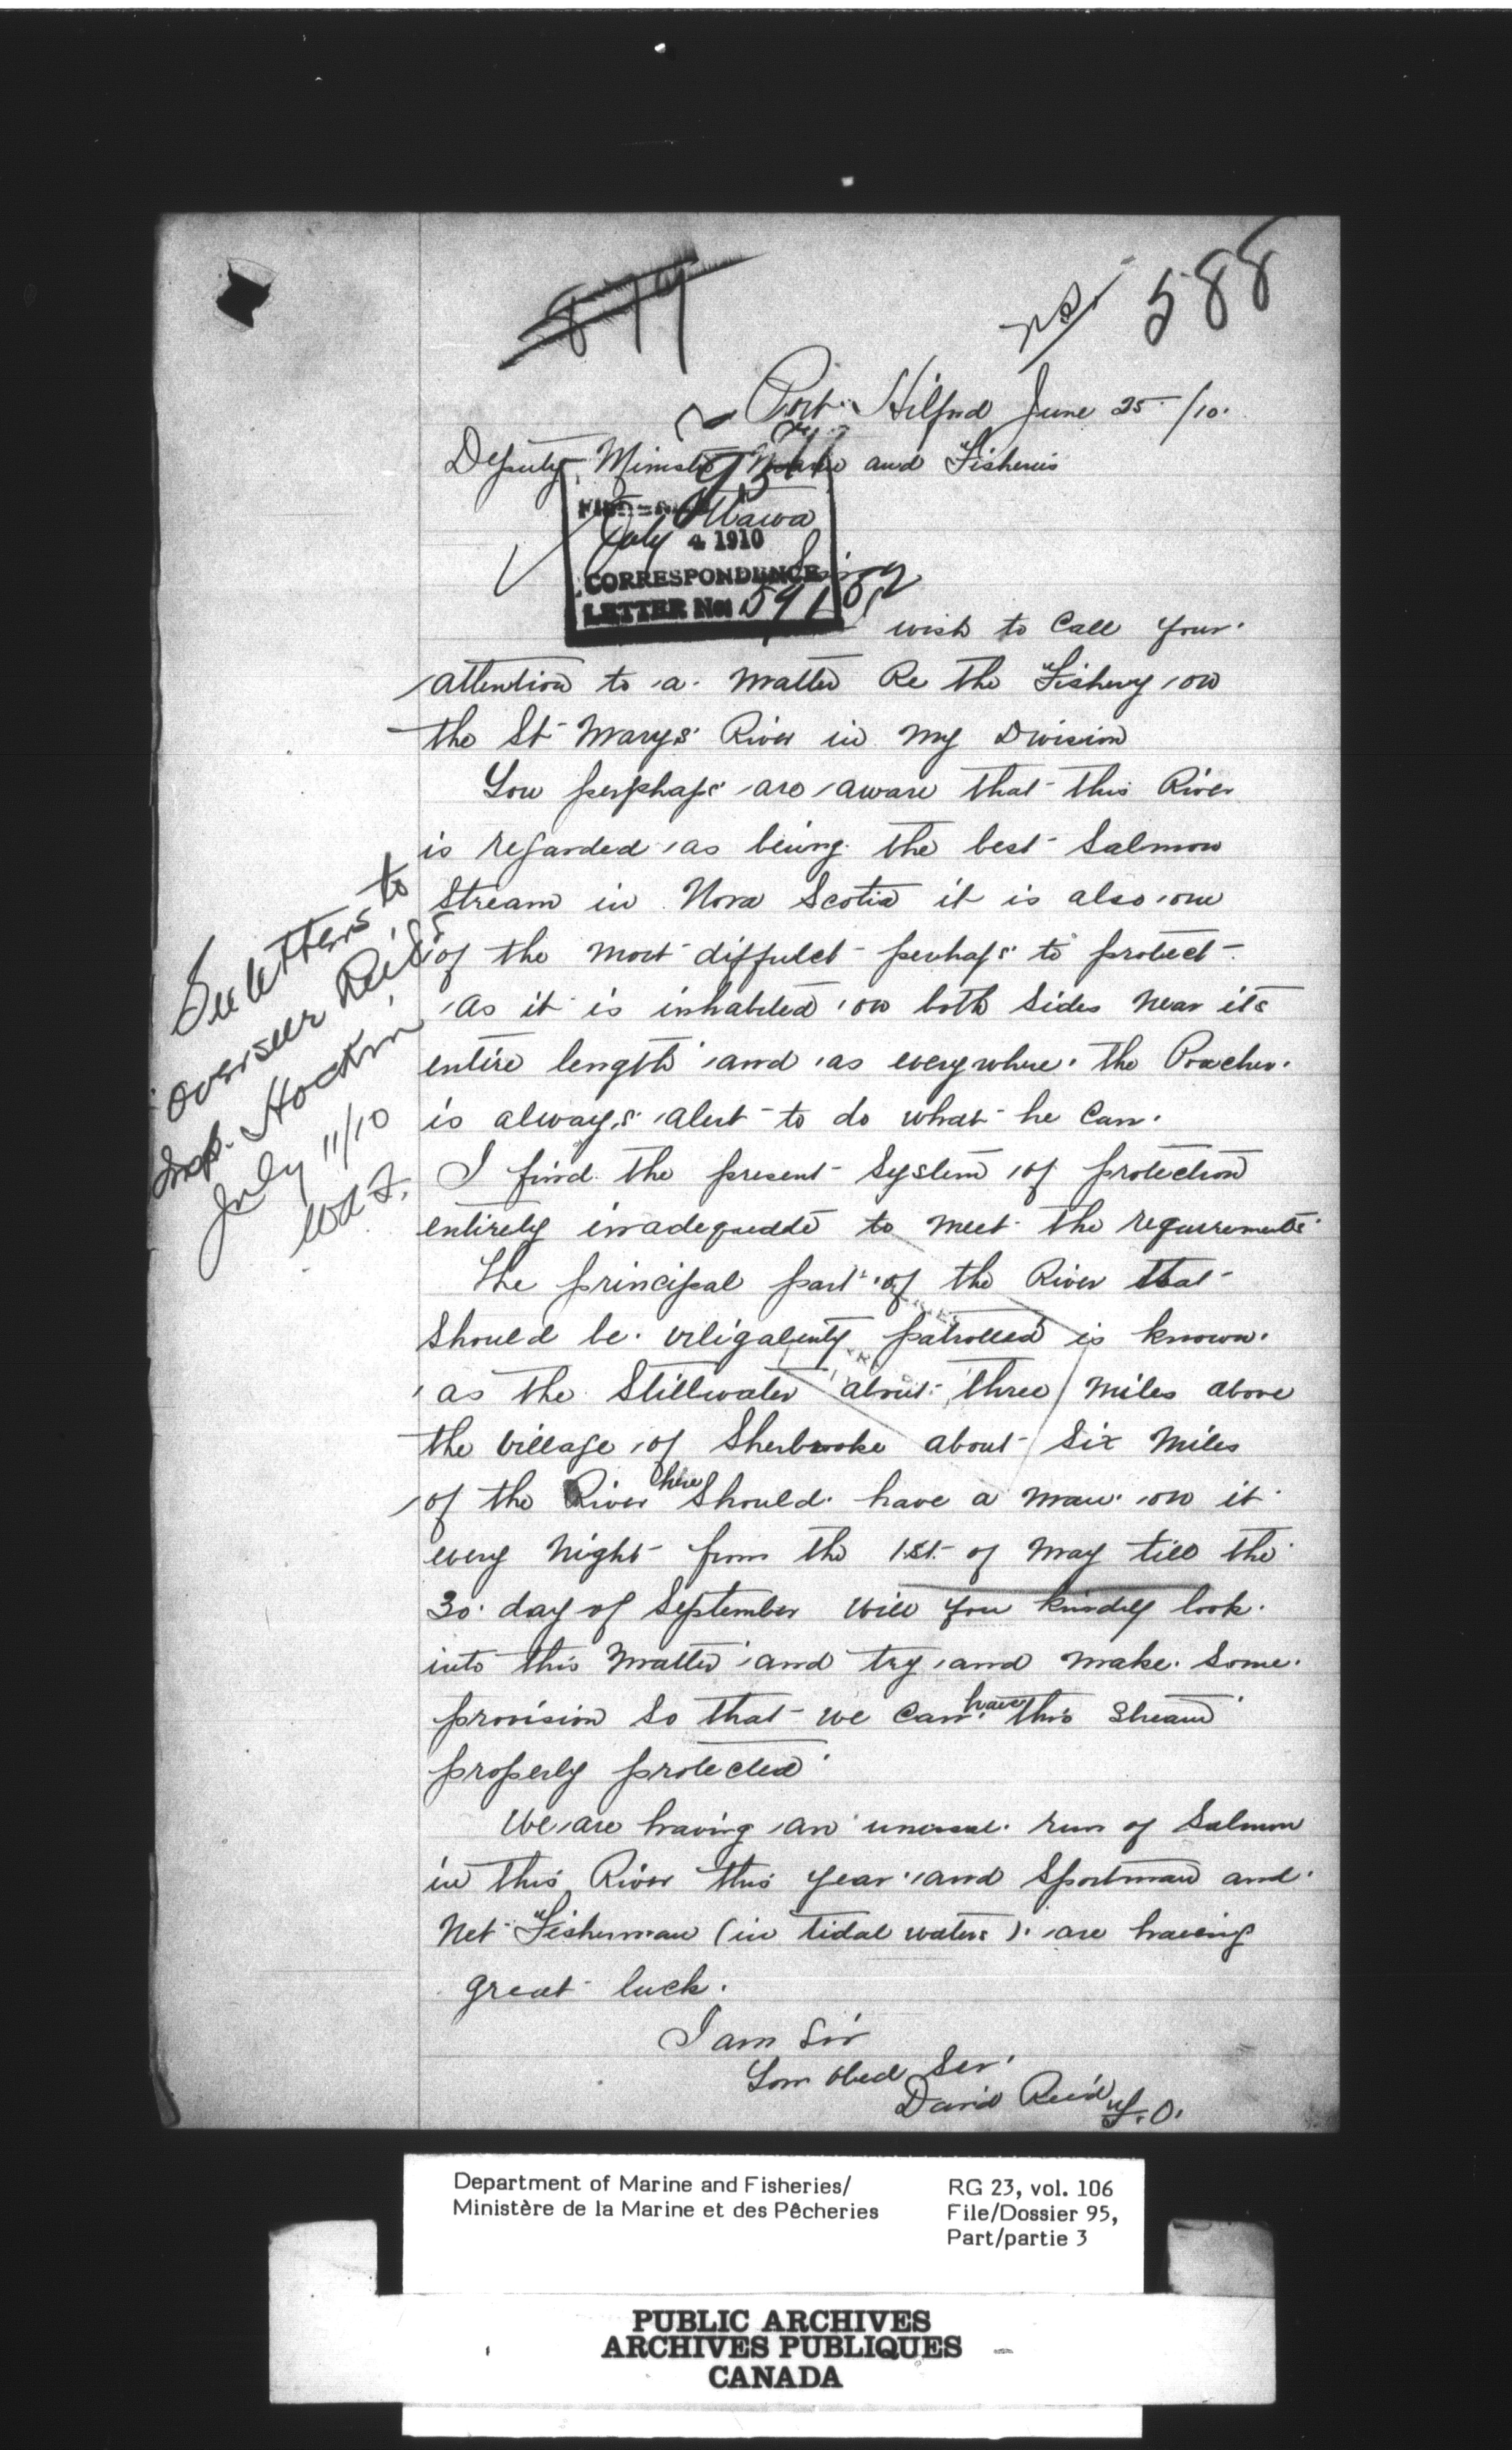 879
N.S. 588
Port Hilford June 25 /10.
Deputy Minister Marine and Fisheries
Ottawa
July 4 1910
CORRESPONDENCE
LETTER No.
wish to Call your
attention to a matter Re the Fishery on
the St Marys River in my Division
You perphaps are aware that this River
is regarded as being the best Salmon
Stream in Nova Scotia it is also one
of the most difficult perhaps to protect
As it is inhabited on both Sides Near its
entire length and as everywhere the Poacher
is always alert to do what he can.
I find the present System of protection
entirely inadequate to meet the requirements
The principal part of the River that
Should be viligalently patrolled is known
as the Stillwater about three miles above
the Village of Sherbrooke about Six Miles
of the River here Should have a man on it
every Night from the 1st of May till the
30 day of September Will you kindly look
into this Matter and try and make Some
provision So that we can have this Stream
properly protected
We are having an unusual run of Salmon
in this River this year and Sportman and
Net Fisherman (in tidal waters) are having
great luck.
I am Sir
Your Obed Ser.
David Reid F.O.
See letters to
overseer Reid &
Insp. Hockin
July 11/10
Department of Marine and Fisheries/
Ministère de la Marine et des Pêcheries
RG 23, vol. 106
File/Dossier 95,
Part/partie 3
PUBLIC ARCHIVES
ARCHIVES PUBLIQUES
CANADA